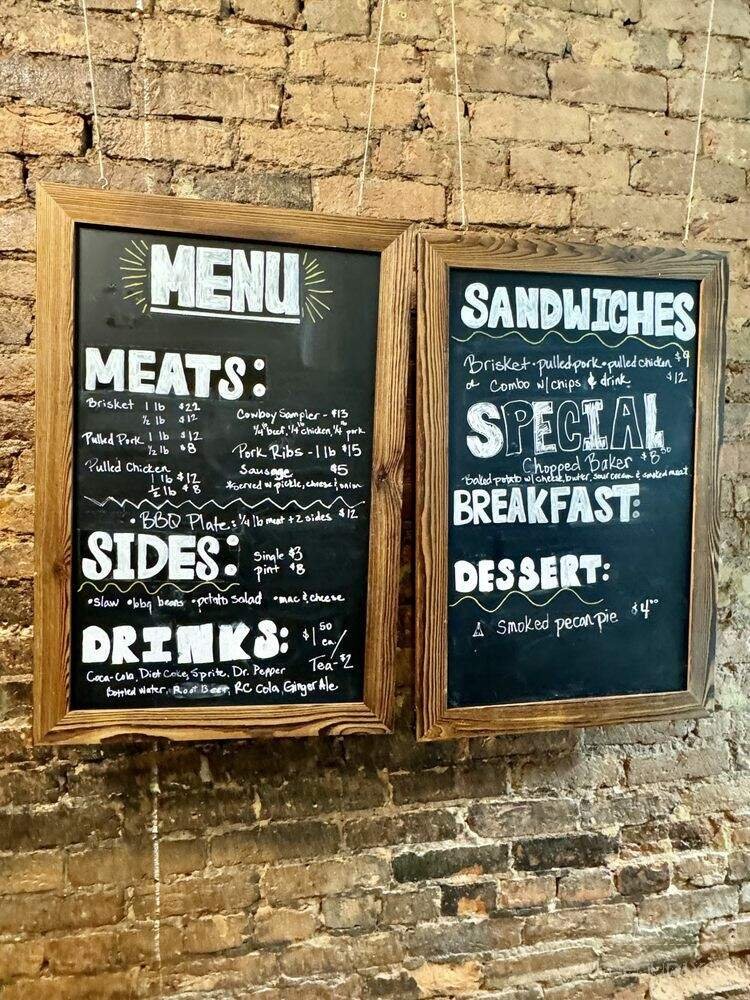 MENU
MEATS:
Brisket 1 lb $22
½ lb $12
Pulled Pork 1 lb $12
½ lb $8
Pulled Chicken
1 lb $12
½ lb $8
Cowboy Sampler - $13
¼ lb beef, ¼ chicken, ¼ pork
Pork Ribs - 1 lb $15
Sausage $5
*Served w/ pickle, cheese & onion
• BBQ Plate: ¼ lb meat + 2 sides $12
SIDES: Single $3
pint $8
• slaw • bbq beans • potato salad • mac & cheese
DRINKS: $1.50 ea/
Tea - $2
Coca-Cola, Diet Coke, Sprite, Dr. Pepper
Bottled Water, Root Beer, RC Cola, Ginger Ale
SANDWICHES
Brisket • pulled pork • pulled chicken $9
or Combo w/ chips & drink $12
SPECIAL
Chopped Baker $8.50
*Baked potato w/ cheese, butter, sour cream & smoked meat
BREAKFAST:
DESSERT:
Smoked pecan pie $4.00